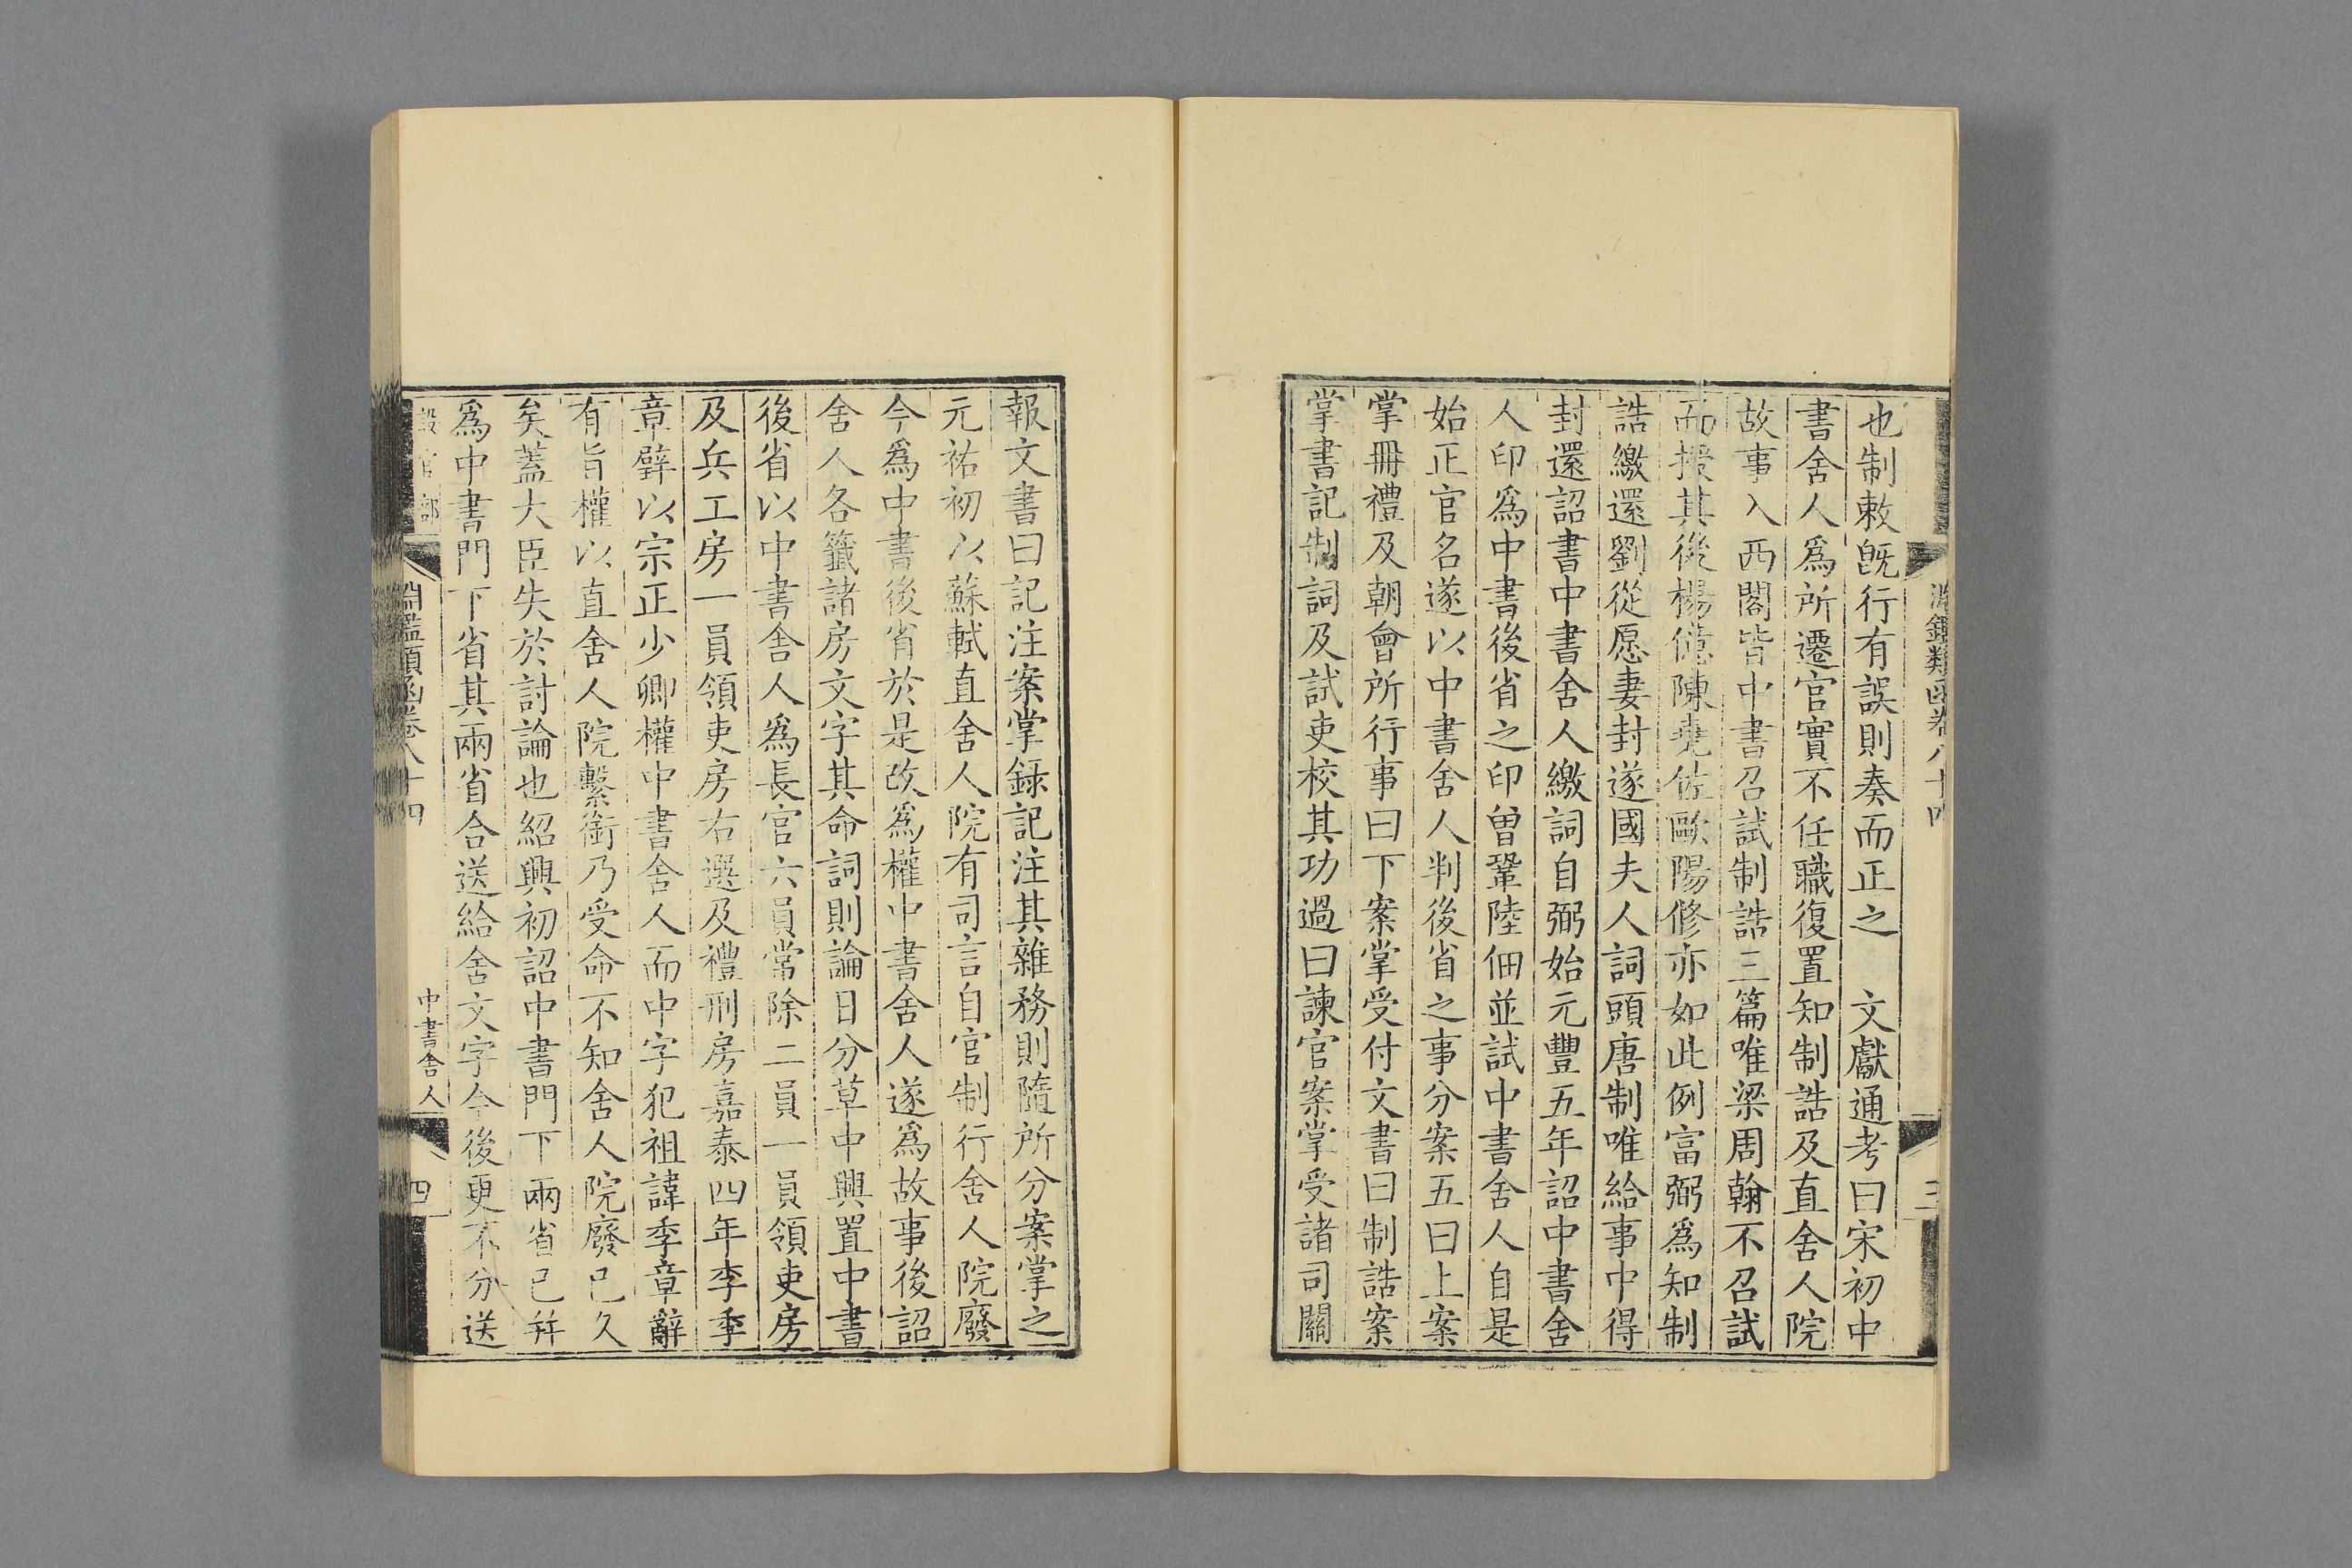 淵鑑類函卷八十四
三
也制敕旣行有誤則奏而正之　文獻通考曰宋初中
書舍人爲所遷官實不任職復置知制誥及直舍人院
故事入西閣皆中書召試制誥三篇唯梁周翰不召試
而授其後楊億陳堯佐歐陽修亦如此例富弼爲知制
誥繳還劉從愿妻封遂國夫人詞頭唐制唯給事中得
封還詔書中書舍人繳詞自弼始元豐五年詔中書舍
人印爲中書後省之印曾鞏陸佃並試中書舍人自是
始正官名遂以中書舍人判後省之事分案五曰上案
掌冊禮及朝會所行事曰下案掌受付文書曰制誥案
掌書記制詞及試吏校其功過曰諫官案掌受諸司關
報文書曰記注案掌錄記注其雜務則隨所分案掌之
元祐初以蘇軾直舍人院有司言自官制行舍人院廢
今爲中書後省於是改爲權中書舍人遂爲故事後詔
舍人各籤諸房文字其命詞則論日分草中興置中書
後省以中書舍人爲長官六員常除二員一員領吏房
及兵工房一員領吏房右選及禮刑房嘉泰四年李季
章擘以宗正少卿權中書舍人而中字犯祖諱季章辭
有旨權以直舍人院繫銜乃受命不知舍人院廢已久
矣蓋大臣失於討論也紹興初詔中書門下兩省已并
爲中書門下省其兩省合送給舍文字今後更不分送
設官部
淵鑑類函卷八十四
中書舍人
四